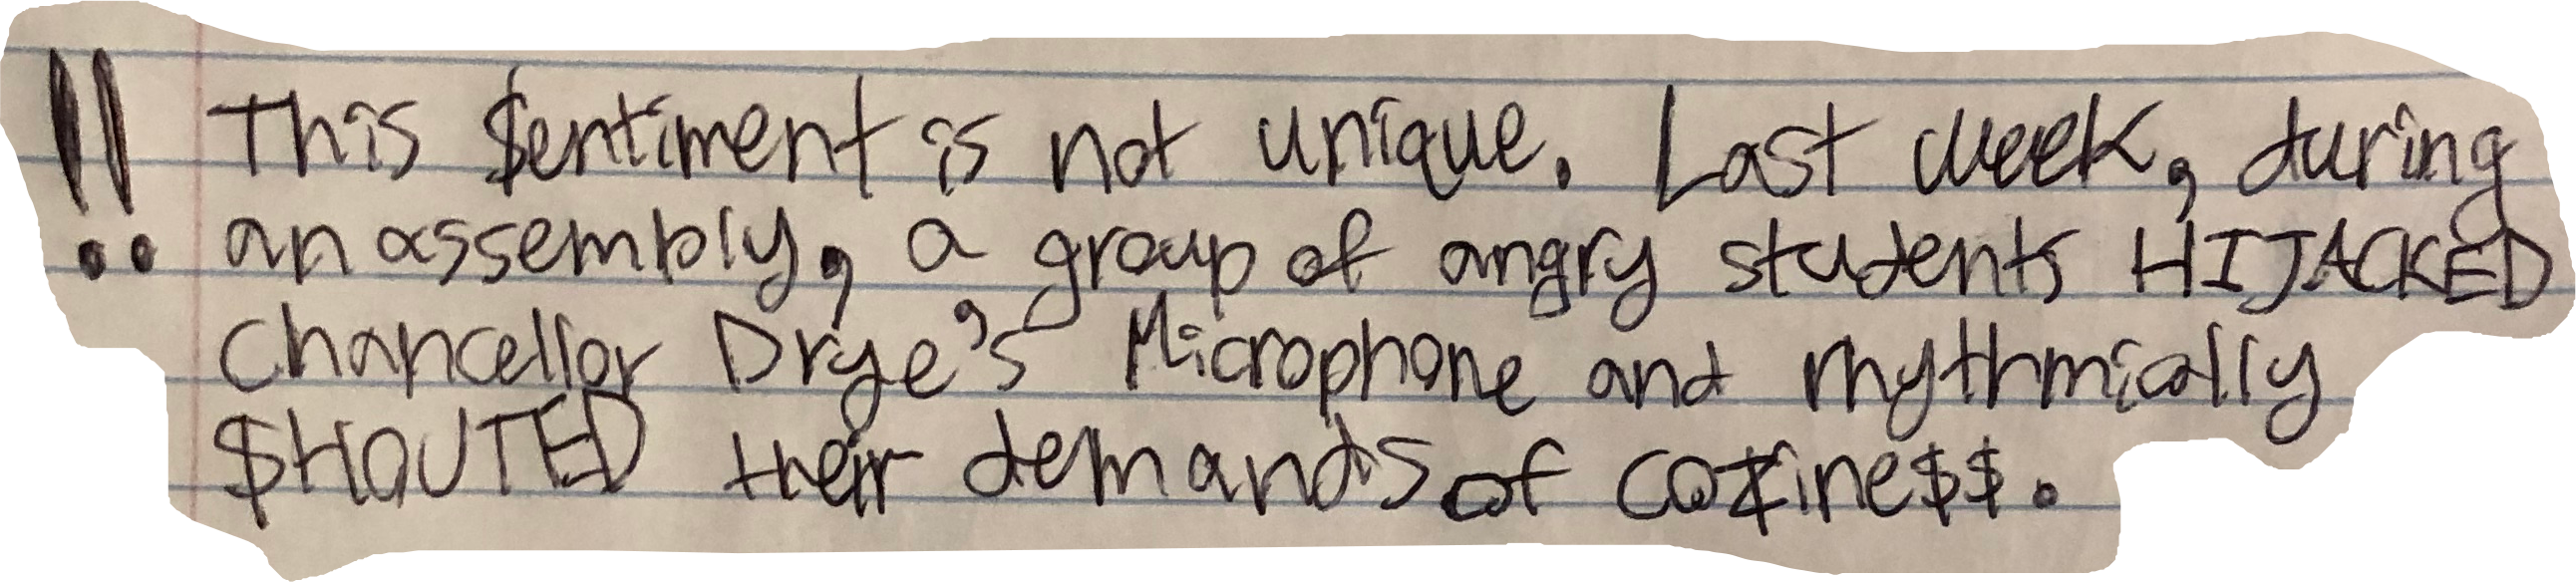 !! This $entiment is not unique. Last week, during
an assembly, a group of angry students HIJACKED
Chancellor Drye's Microphone and rhythmically
$HOUTED their demands of cozine$$.